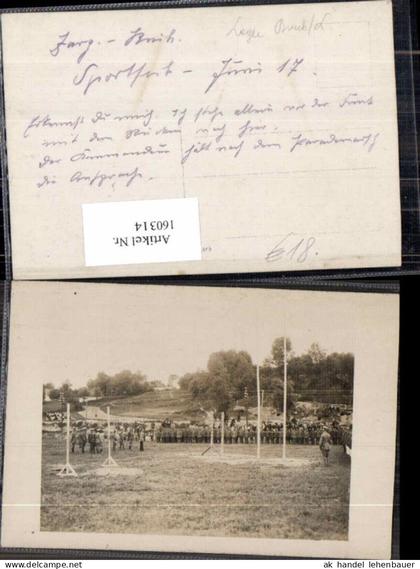 Jarg. - Brih.
Sportfest - Juni 17.
Erkennst du mich. Ich stehe allein vor der Front
mit dem Rücken nach hier.
Der Kommandeur hält nach dem Parademarsch
die Ansprache.
Artikel Nr.
160314
€18.
ak handel lehenbauer